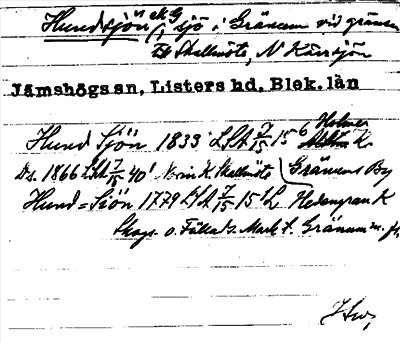 Hundsjön, sjö i Gränum vid gränsen
t. Skallnöte, N Kärrsjön
Jämshögs sn, Listers hd, Blek. län
Hund Sjön 1833 LSA 7/15 15 6 Holmer K
Ds. 1866 LSA 7/15 40 Norin K Skallnöte Gränums By
Hund=Siön 1779 LSA 7/15 15 Hedengran K
Skogs- o. Fälads Mark t. Gränum m. fl.